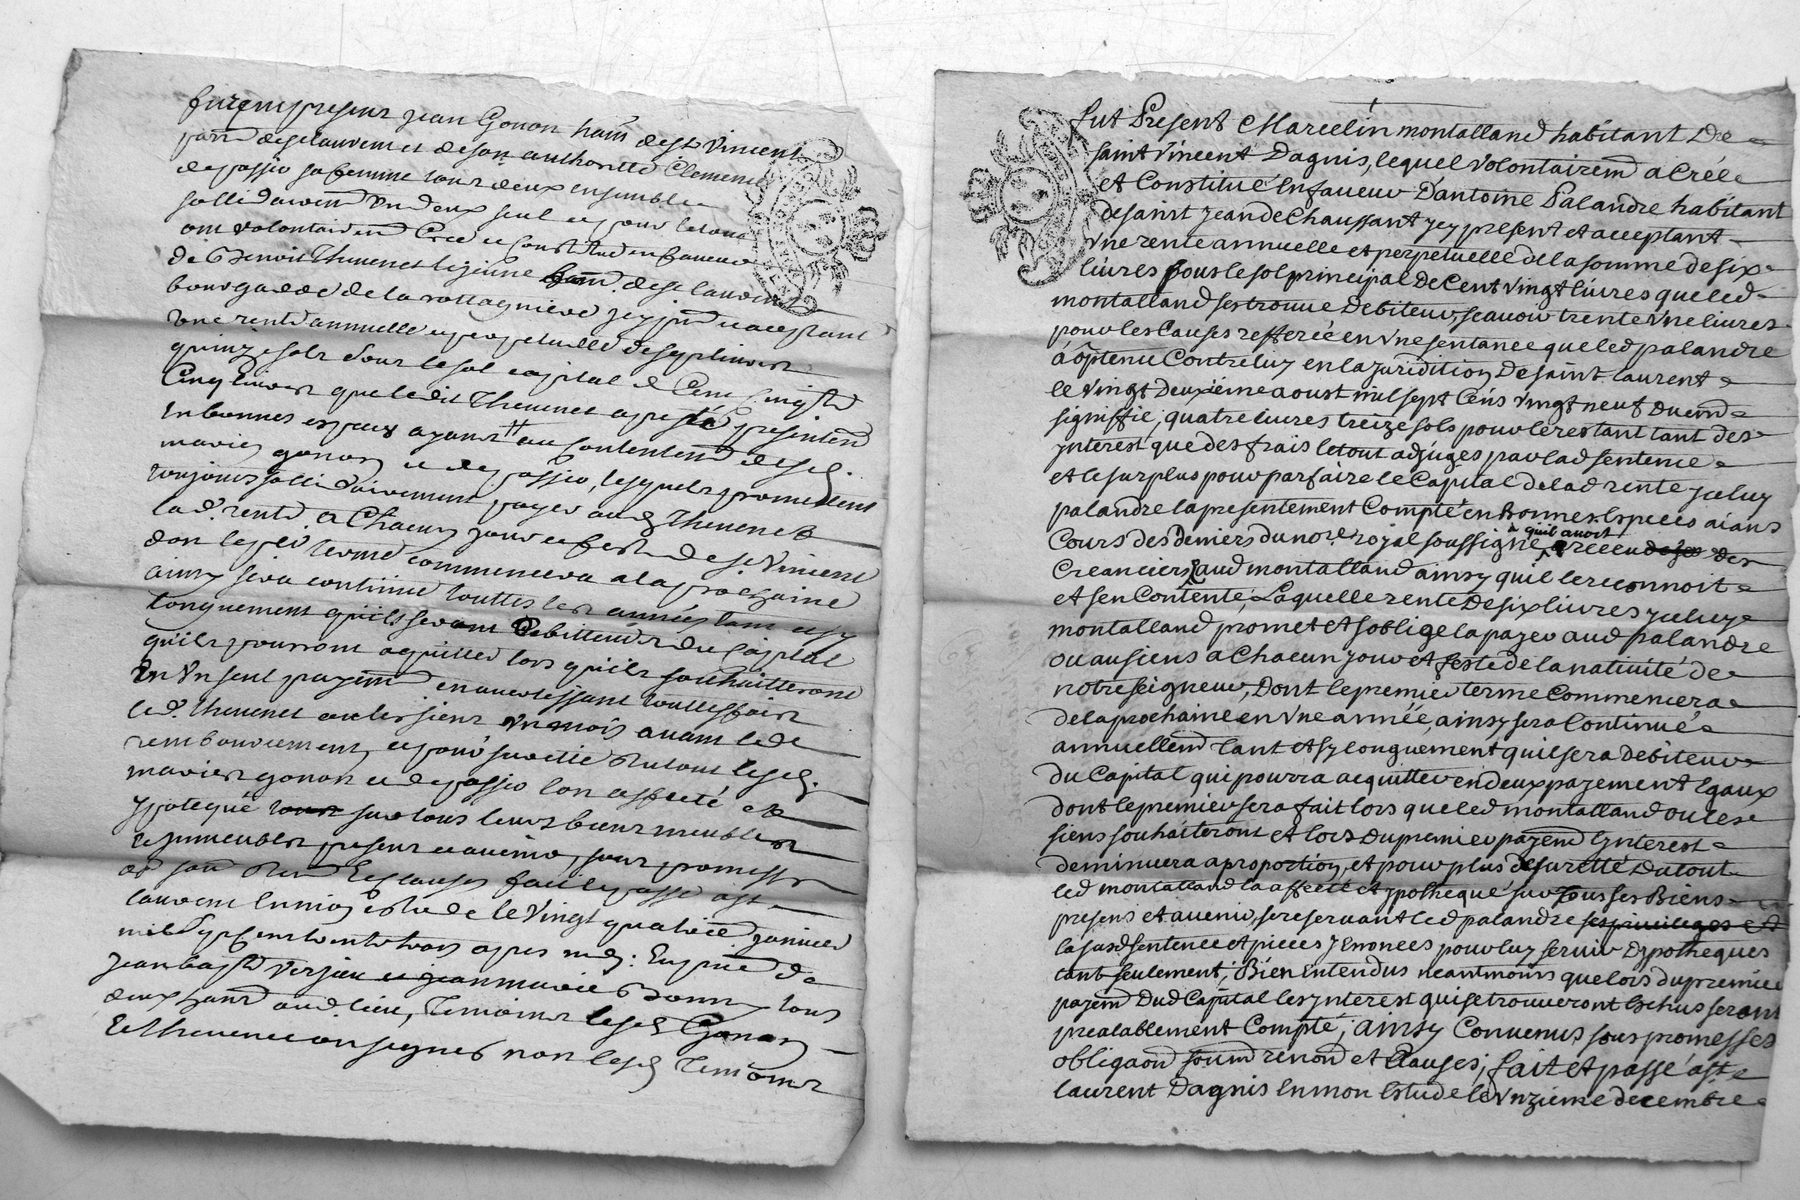 furent presens jean Gonon habnt de st Vincent
parr de st laurent et de son authoritté Clemence
de passio sa femme tous deux ensemble
sollidairemt un deux seul et pour le tout
ont volontairemt Créé et Constitué en faveur
de Benoit Thevenet le jeune habnt de st laurent
bourgade de la rottagniere jcy pnt et acceptant
une rente annuelle et perpetuelle de six livres
quinze sols pour le sol capital de Cent vingt
Cinq livres que ledit Thevenet a presté presentemt
en bonnes espaces ayant au Contentemt desd.
mariés gonon et de passio, lesquels promettent
toujours sollidairement payer aud Thevenet
lad. rente a Chacun jour et feste de st Vincent
don le per terme commencera a la prochaine
ainsy sera continué touttes les années tant et sy
longuement quils seront Debitteurs du Capital
quils pourront aquitter lors quils souhaitteront
En Un seul payemt en avertissant touttesfois
led. thevenet ou les siens un mois avant led
remboursement et pour suretté du tout lesd.
mariés gonon et de passio lon affecté et
ypotequé sur tous leurs biens meubles
et jmmeubles presens et avenir, sous promesses
obd soub Renon Et Clauses fait et passé a st
laurent En mon estude le vingt quatrie janvier
mil sept cens trente trois apres midy En pnce de
jean baptiste Verzieu et jean marie Bonny tous
deux habnt aud. lieu, Temoins lesd Gonon
et Thevenet ont signés non lesd Temoins
fut Present Marcelin montalland habitant De
saint Vincent Dagnis, lequel volontairemt a Créé
et Constitué En faveur Dantoine Palandre habitant
de saint Jean de Chaussant jcy present et acceptant
Une rente annuelle et perpetuelle de la somme de six
livres sous le sol principal de Cent Vingt livres que led
montalland ses trouve Debiteur, scavoir trente Une livres
pour les Causes refferée en Une sentance que led palandre
à optenue Contre luy en la juridition De saint laurent
le Vingt Deuxieme aoust mil sept Cens Vingt neuf Duemt
signiffié, quatre livres treize sols pour le restant tant des
jnterest que des frais le tout adjugés par lad sentence
et le surplus pour parfaire le Capital de lad rente jceluy
palandre la presentement Compté en Bonnes Especes aians
quil avoit
Cours des Deniers du nore royal soussigné, receu des
Creanciers aud montalland ainsy quil le reconnoit
et sen Contente, Laquelle rente De six livres jceluy
montalland promet et soblige la payer aud palandre
ou au siens a Chacun jour et feste de la nativité de
notre seigneur, Dont le premier terme Commencera
de la prochaine en Une année, ainsy sera Continué
annuellemt tant et sy longuement quil sera Debiteur
du Capital qui pourra acquitter en deux payement Egaux
dont le premier sera fait lors que led montalland ou les
siens souhaiteront et lors du premier payemt lynterest
deminuera a proportion, et pour plus de suretté Du tout
led montalland la affecté et ypothequé sur tous ses Biens
presens et avenir, se reservant led palandre ses privileges et
la susd sentence et pieces Enoncées pour luy servir Dypotheques
tant seulement; Bien entendus neantmoins que lors du premier
payemt Dud Capital les jnterest qui se trouveront Echus seront
prealablement Compté; ainsy Convenus sous promesses
obligaon soumn renon et Clauses; fait et passé a st
laurent Dagnis En mon Estude le Unzieme decembre